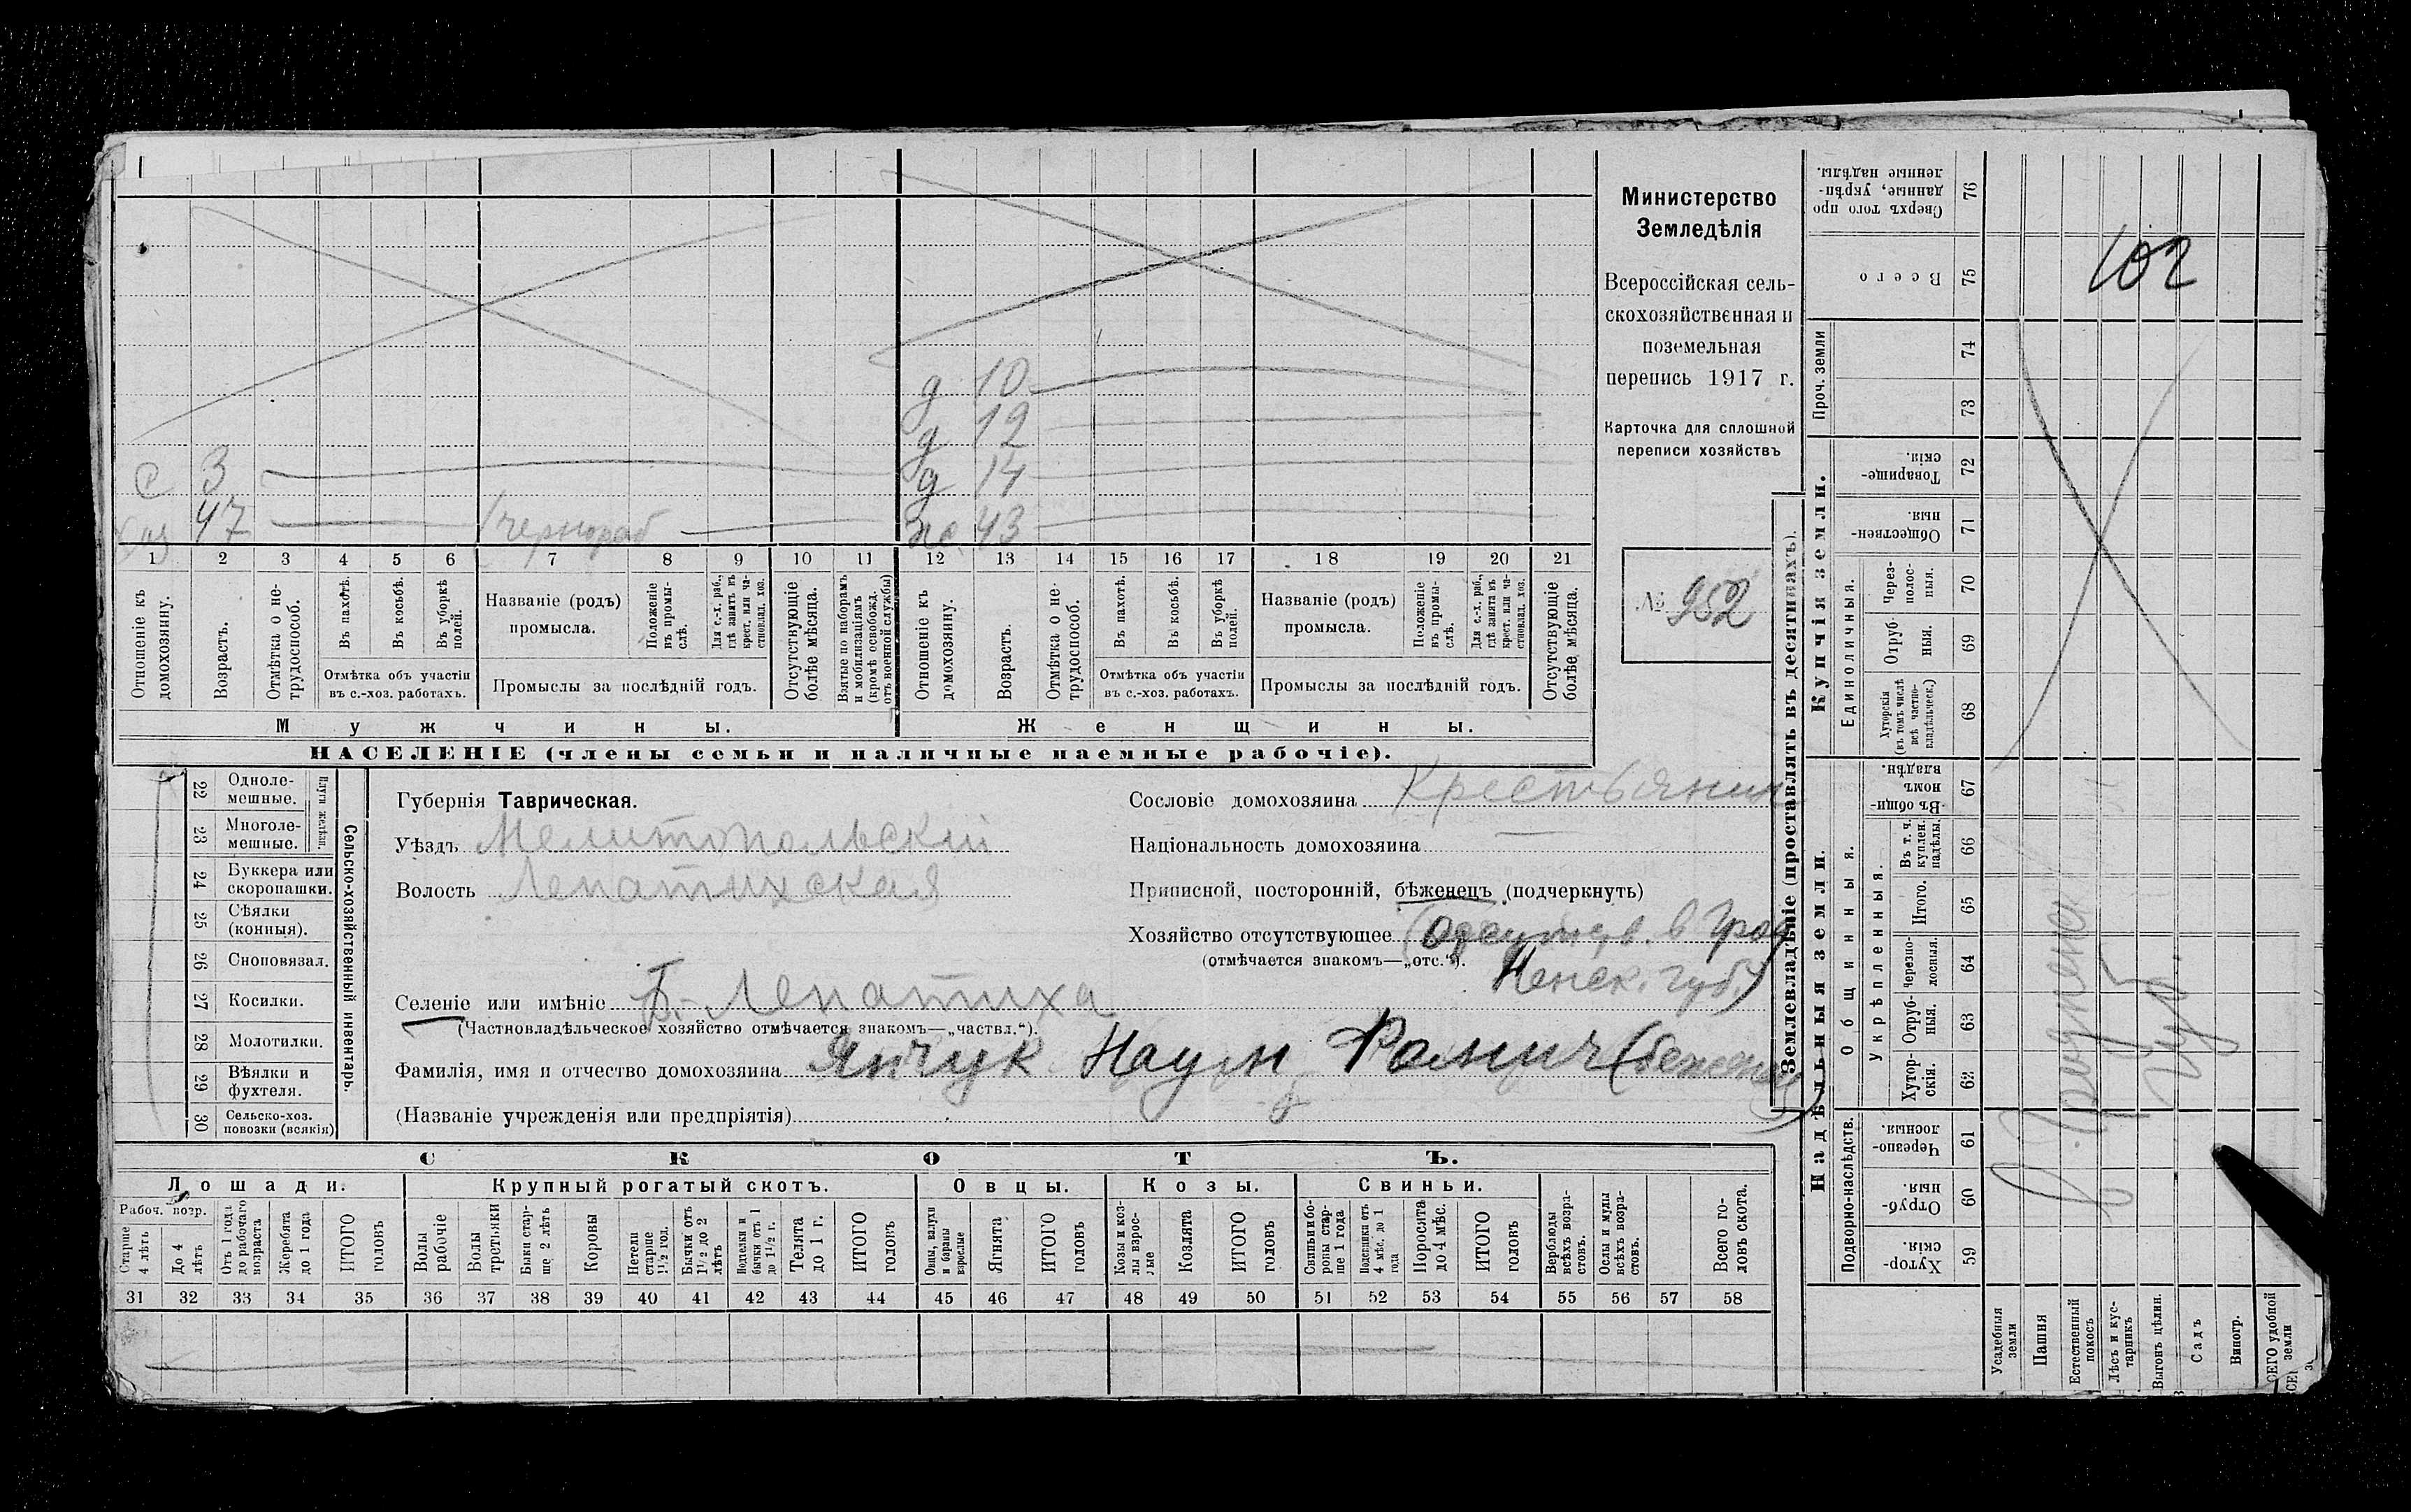 102
Министерство
Земледѣлія
Всероссійская сель-
скохозяйственная и
поземельная
перепись 1917 г.
Карточка для сплошной
переписи хозяйствъ
№ 952
д 10
д 12
д 14
с 3
хоз 47 чернораб
43
1 2 3 4 5 6 7 8 9 10 11 12 13 14 15 16 17 18 19 20 21
Отношеніе къ домохозяину.
Возрастъ.
Отмѣтка о не-трудоспособ.
Въ пахотѣ.
Въ косьбѣ.
Въ уборкѣ полей.
Отмѣтка объ участіи
въ с.-хоз. работахъ.
Названіе (родъ)
промысла.
Положеніе въ промы-слѣ.
Для с.-х. раб., гдѣ занятъ въ крест. или ча-стновлад. хоз.
Промыслы за послѣдній годъ.
Отсутствующіе болѣе мѣсяца.
Взятые по наборамъ и мобилизаціямъ (кромѣ освобожд. отъ военной службы)
Отношеніе къ домохозяину.
Возрастъ.
Отмѣтка о не-трудоспособ.
Въ пахотѣ.
Въ косьбѣ.
Въ уборкѣ полей.
Отмѣтка объ участіи
въ с.-хоз. работахъ.
Названіе (родъ)
промысла.
Положеніе въ промы-слѣ.
Для с.-х. раб., гдѣ занята въ крест. или ча-стновлад. хоз.
Промыслы за послѣдній годъ.
Отсутствующіе болѣе мѣсяца.
Мужчины.
Женщины.
НАСЕЛЕНІЕ (члены семьи и наличные наемные рабочіе).
22 Одноле-мешные.
23 Многоле-мешные.
Плуги желѣзн.
24 Буккера или скоропашки.
25 Сѣялки (конныя).
26 Сноповязал.
27 Косилки.
28 Молотилки.
29 Вѣялки и фухтеля.
30 Сельско-хоз. повозки (всякія)
Сельско-хозяйственный инвентарь.
Губернія Таврическая.
Уѣздъ Мелитопольскій
Волость Лепатихская
Селеніе или имѣніе Б. Лепатиха
(Частновладѣльческое хозяйство отмѣчается знакомъ—„частвл.“).
Фамилія, имя и отчество домохозяина Янчук Наум
(Названіе учрежденія или предпріятія)
Сословіе домохозяина Крестьянин
Національность домохозяина —
Приписной, посторонній, бѣженецъ (подчеркнуть)
Хозяйство отсутствующее
(отмѣчается знакомъ—„отс.“).
СКОТЪ.
Лошади.
Крупный рогатый скотъ.
Овцы.
Козы.
Свиньи.
Рабоч. возр.
Старше 4 лѣтъ
До 4 лѣтъ
Отъ 1 года до рабочаго возраста
Жеребята до 1 года
ИТОГО головъ
Волы рабочіе
Волы третьяки
Быки стар-ше 2 лѣтъ
Коровы
Нетели старше 1½ год.
Бычки отъ 1½ до 2 лѣтъ
Подтелки и бычки отъ 1 до 1½ г.
Телята до 1 г.
ИТОГО головъ
Овцы, валухи и бараны взрослые
Ягнята
ИТОГО головъ
Козы и коз-лы взрос-лые
Козлята
ИТОГО головъ
Свиньи и бо-ровы стар-ше 1 года
Подсвинки отъ 4 мѣс. до 1 года
Поросята до 4 мѣс.
ИТОГО головъ
Верблюды всѣхъ возра-стовъ.
Ослы и мулы всѣхъ возра-стовъ.
Всего го-ловъ скота.
31 32 33 34 35 36 37 38 39 40 41 42 43 44 45 46 47 48 49 50 51 52 53 54 55 56 57 58
Землевладѣніе (проставлять въ десятинахъ).
Надѣльныя земли.
Купчія земли.
Проч. земли
Подворно-наслѣдств.
Общинныя.
Укрѣпленныя.
Единоличныя.
Сверхъ того про-данные, укрѣп-ленные надѣлы. 76
Всего 75
74
73
Товарище-скія. 72
Обществен-ныя. 71
Через-полос-ныя. 70
Отруб-ныя. 69
Хуторскія (въ томъ числѣ всѣ частно-владѣльческ.) 68
Въ общин-номъ владѣн. 67
Въ т. ч. куплен. надѣлы. 66
Итого. 65
черезпо-лосныя. 64
Отруб-ныя. 63
Хутор-скія. 62
Черезпо-лосныя. 61
Отруб-ныя. 60
Хутор-скія. 59
Усадебныя земли
Пашня
Естественный покосъ
Лѣсъ и кус-тарникъ
Выгонъ цѣлин.
Садъ
Виногр.